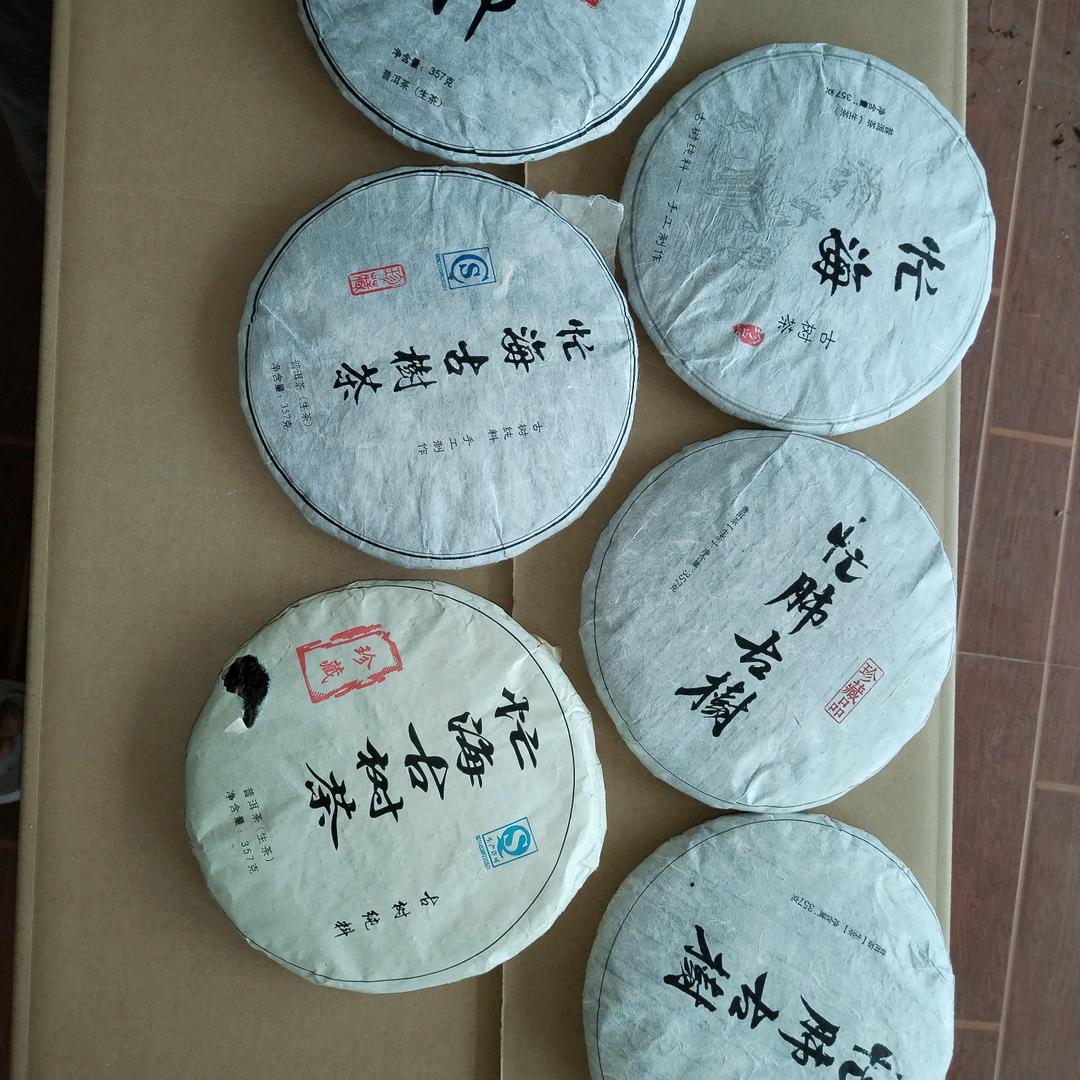 净含量：357克
普洱茶（生茶）
忙海
古树茶
古树纯料 — 手工制作
普洱茶（生茶）
净含量：357克
忙海古樹茶
古树纯料
手工制作
珍藏
普洱茶（生茶）
净含量：357克
忙肺古樹
珍藏品
普洱茶（生茶） 净含量：357克
忙海古树茶
珍藏
古树纯料
普洱茶（生茶）
净含量：357克
忙肺古樹
普洱茶（生茶） 净含量：357克